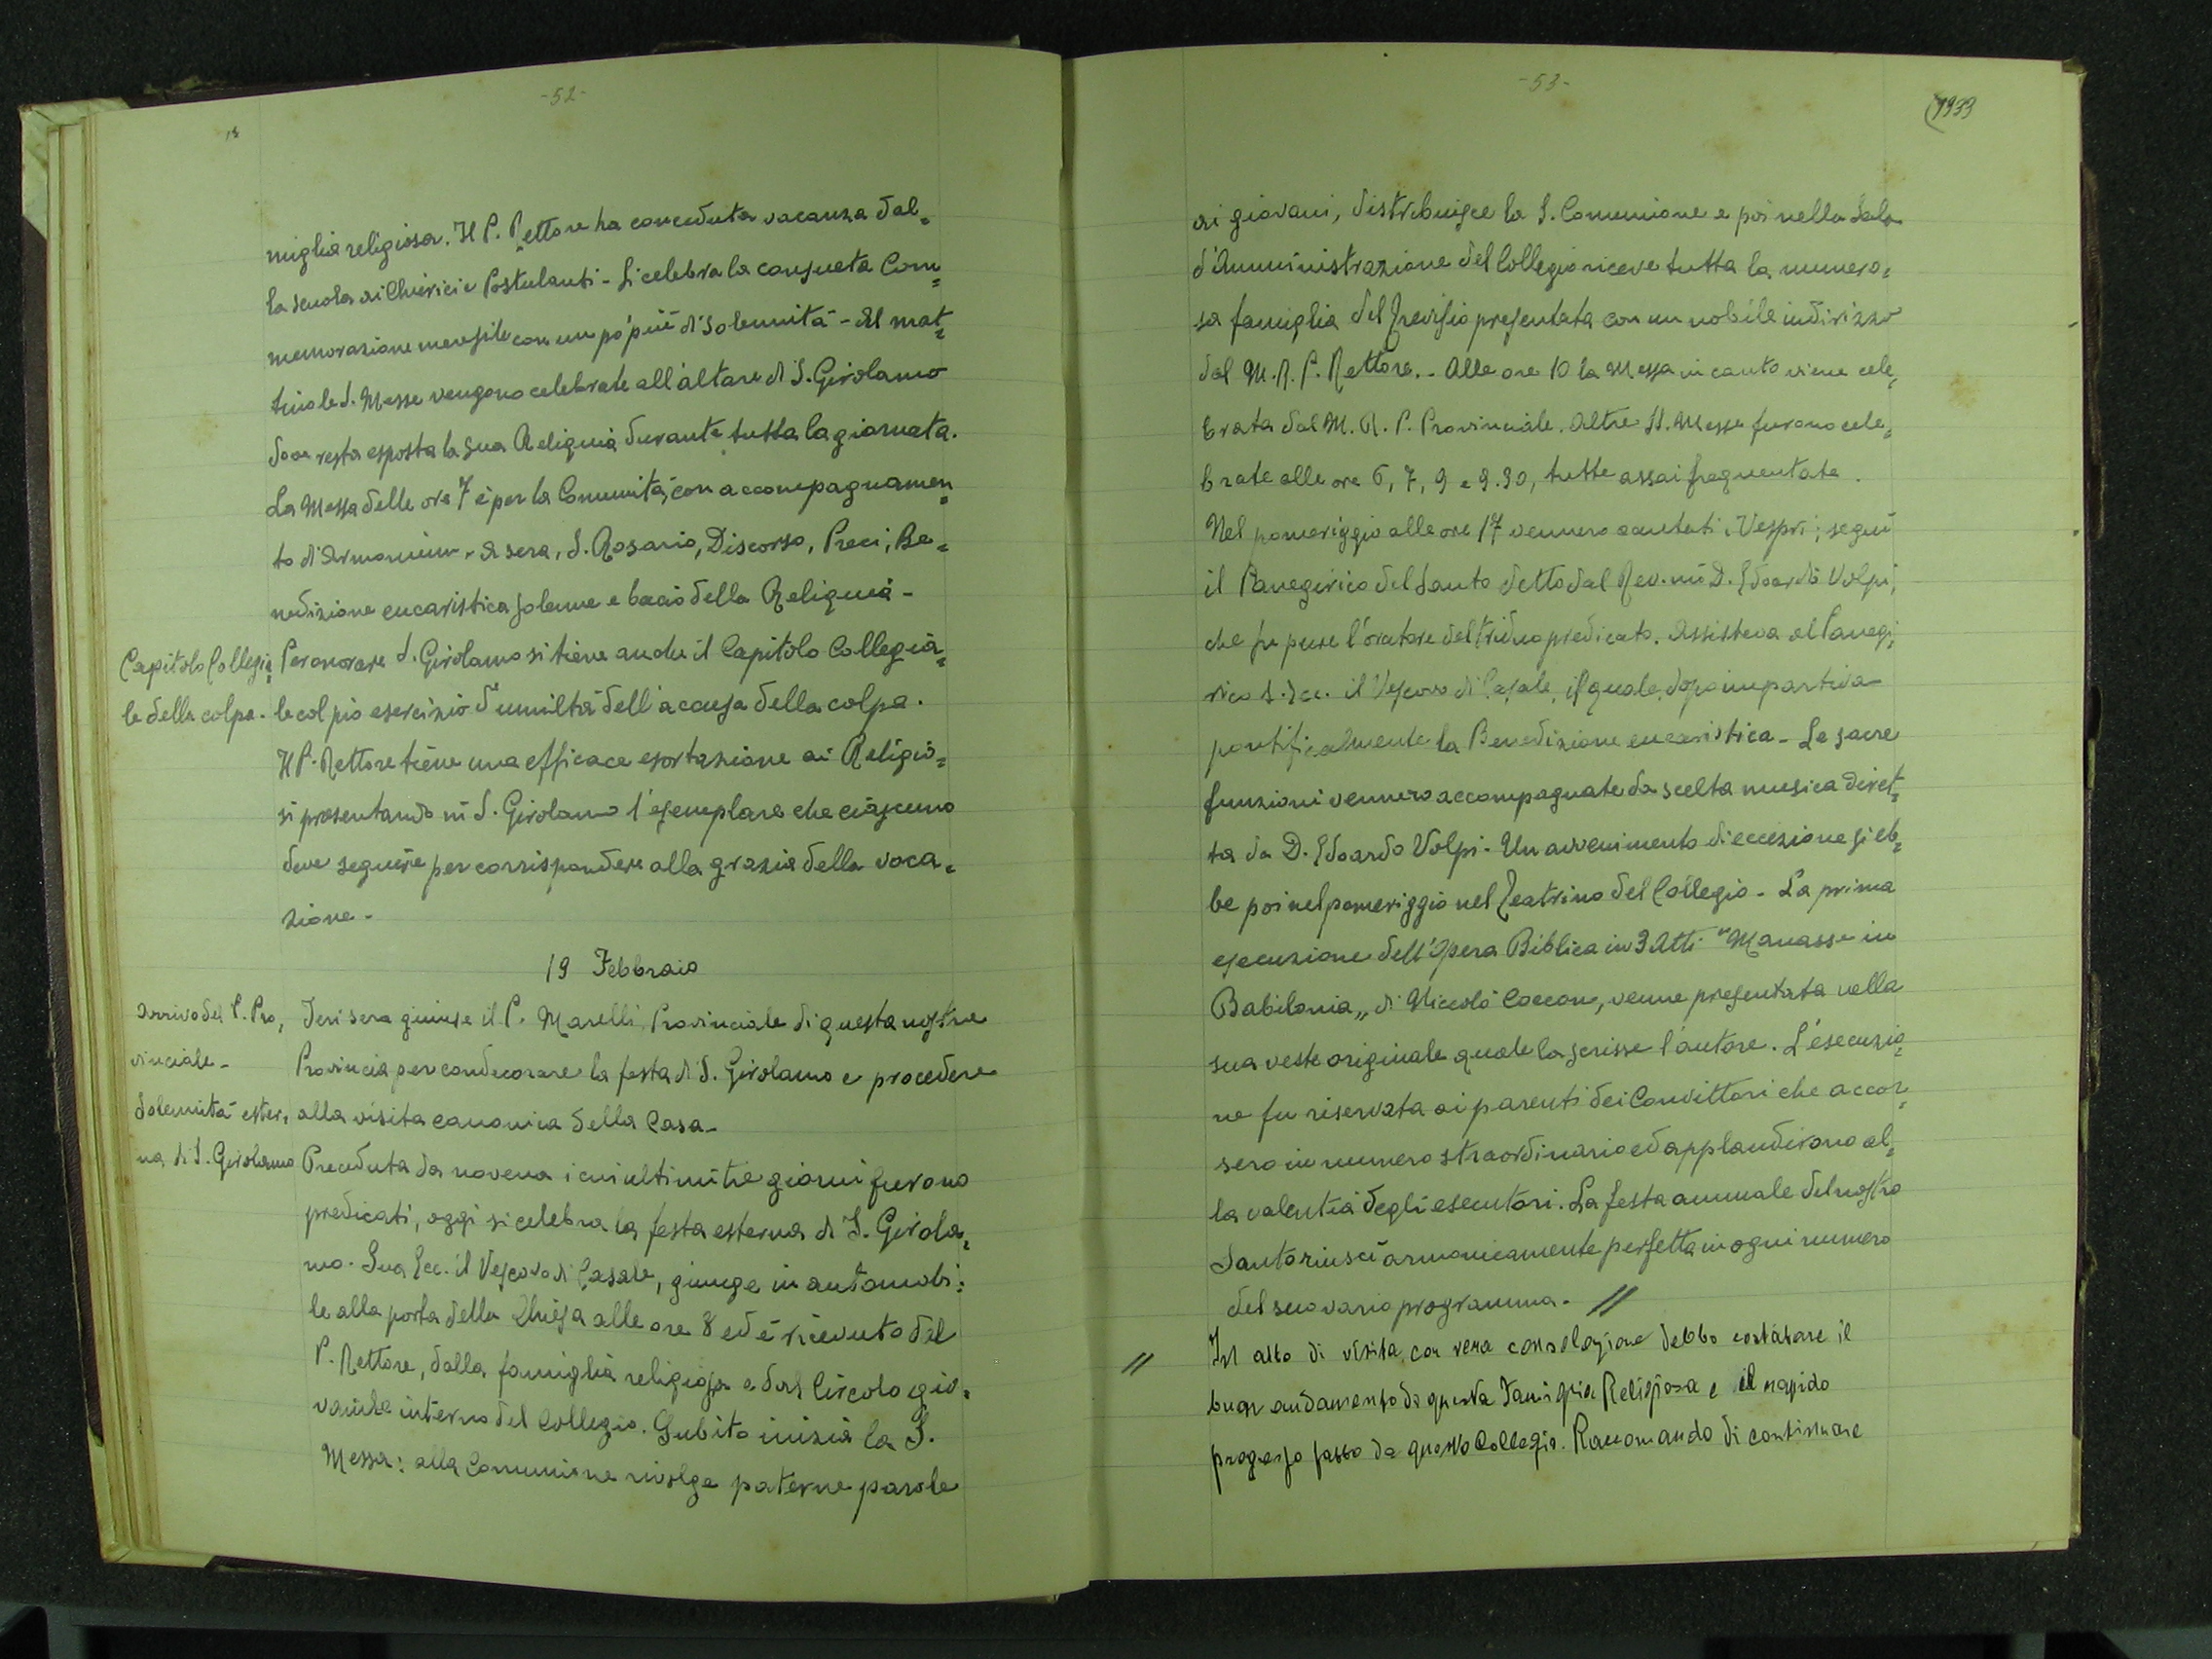 -52-
miglia religiosa. Il P. Rettore ha conceduta vacanza dal=
la scuola ai Chierici e Postulanti - Si celebra la consueta Com=
memorazione mensile con un pò più di solennità - Al mat=
tino le S. Messe vengono celebrate all'altare di S. Girolamo
dove resta esposta la sua Reliquia durante tutta la giornata.
La Messa delle ore 7 è per la Comunità, con accompagnamen=
to di Armonium - A sera, S. Rosario, Discorso, Preci, Be=
nedizione eucaristica solenne e bacio della Reliquia -
Capitolo Collegia=
le della colpa.
Per onorare S. Girolamo si tiene anche il Capitolo Collegia=
le col pio esercizio d'umiltà dell'accusa della colpa.
Il P. Rettore tiene una efficace esortazione ai Religio=
si presentando in S. Girolamo l'esemplare che ciascuno
deve seguire per corrispondere alla grazia della voca=
zione -
19 Febbraio
Arrivo del P. Pro=
vinciale -
Ieri sera giunse il P. Marelli Provinciale di questa nostra
Provincia per condecorare la festa di S. Girolamo e procedere
alla visita canonica della Casa -
Solennità ester=
na di S. Girolamo
Preceduta da novena i cui ultimi tre giorni furono
predicati, oggi si celebra la festa esterna di S. Girola=
mo. Sua Ecc. il Vescovo di Casale, giunge in automobi=
le alla porta della Chiesa alle ore 8 ed è ricevuto dal
P. Rettore, dalla famiglia religiosa e dal Circolo gio=
vanile interno del Collegio. Subito inizia la S.
Messa: alla Comunione rivolge paterne parole
-53-
1933
ai giovani, distribuisce la S. Comunione e poi nella Sala
d'Amministrazione del Collegio riceve tutta la numero=
sa famiglia del Trevisio presentata con un nobile indirizzo
dal M. R. P. Rettore. - Alle ore 10 la Messa in canto viene cele=
brata dal M. R. P. Provinciale. Altre SS. Messe furono cele=
brate alle ore 6, 7, 9 e 9.30, tutte assai frequentate.
Nel pomeriggio alle ore 17 vennero cantati i Vespri; seguì
il Panegirico del Santo detto dal Rev.mo D. Edoardo Volpi,
che fu pure l'oratore del triduo predicato. Assisteva al Panegi=
rico S. Ecc. il Vescovo di Casale, il quale, dopo impartiva
pontificalmente la Benedizione eucaristica - Le sacre
funzioni vennero accompagnate da scelta musica diret=
ta da D. Edoardo Volpi - Un avvenimento di eccezione si eb=
be poi nel pomeriggio nel Teatrino del Collegio - La prima
esecuzione dell'Opera Biblica in 3 Atti "Manasse in
Babilonia„ di Niccolò Coccon, venne presentata nella
sua veste originale quale la scrisse l'autore. L'esecuzio=
ne fu riservata ai parenti dei Convittori che accor=
sero in numero straordinario ed applaudirono al=
la valentia degli esecutori. La festa annuale del nostro
Santo riuscì armonicamente perfetta in ogni numero
del suo vario programma. - //
// In atto di visita, con vera consolazione debbo costatare il
buon andamento di questa Famiglia Religiosa e il rapido
progresso fatto da questo Collegio. Raccomando di continuare